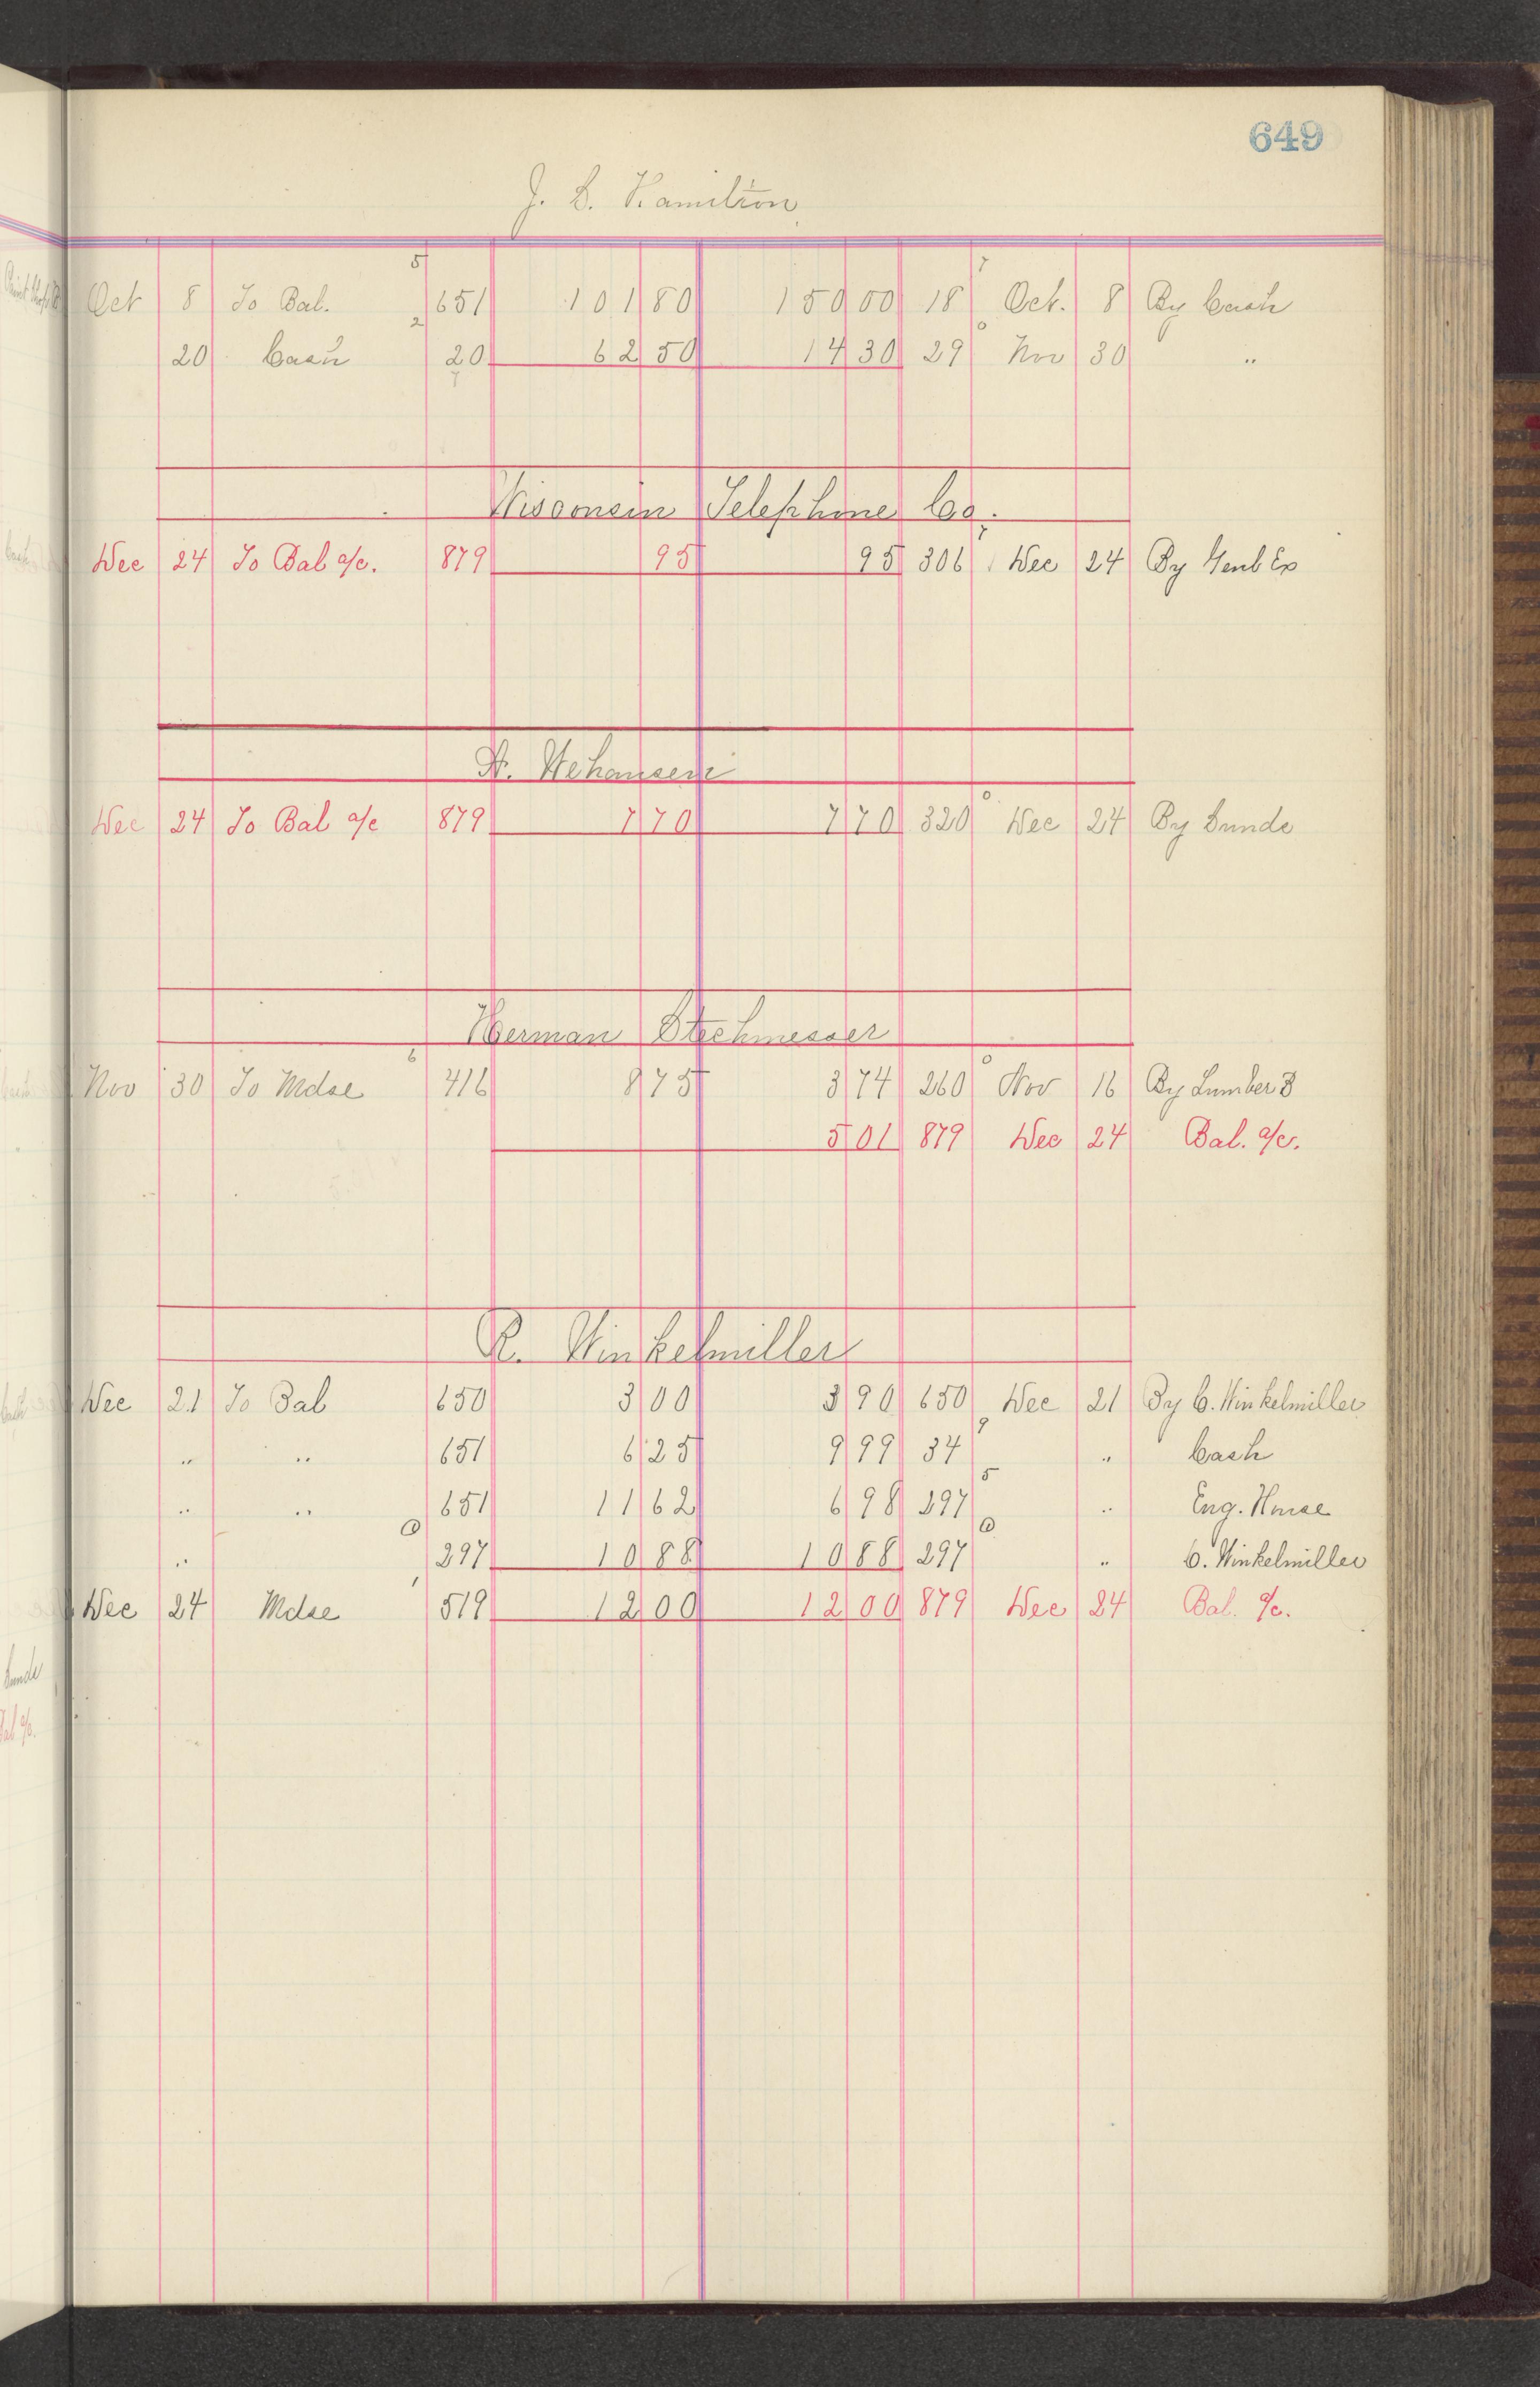 649
J. B. Hamilton
5 7
Oct 8 To Bal. 651 101 80 150 00 18 Oct. 8 By Cash
2 0
20 Cash 20 62 50 14 30 29 Nov 30 "
7
Wisconsin Telephone Co.
Dec 24 To Bal a/c. 879 95 95 306 Dec 24 By Genl Ex
A. Wehausen
0
Dec 24 To Bal a/c 879 7 70 7 70 320 Dec 24 By Sunds
Herman Stechmesser
6 0
Nov 30 To Mdse 416 8 75 3 74 260 Nov 16 By Lumber B
5 01 879 Dec 24 Bal. a/c.
R. Winkelmiller
Dec 21 To Bal 650 3 00 3 90 650 Dec 21 By C. Winkelmiller
9
" " 651 6 25 9 99 34 " Cash
5
" " 651 11 62 6 98 297 " Eng. House
0 0
" 297 10 88 10 88 297 " C. Winkelmiller
1
Dec 24 Mdse 519 12 00 12 00 879 Dec 24 Bal. a/c.